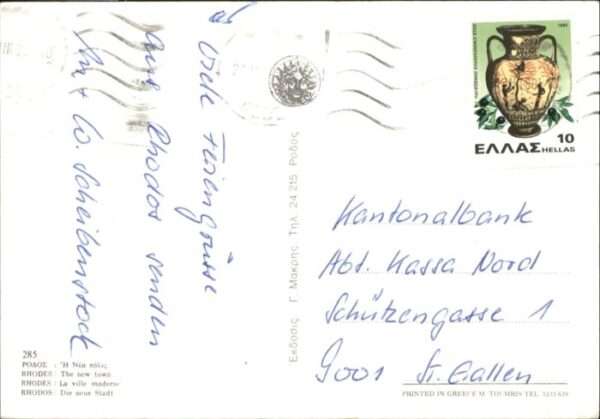 Viele Feriengrüsse
aus Rhodos senden
W. Scheibenstock
285
ΡΟΔΟΣ : Ἡ Νέα πόλις
RHODES : The new town
RHODES : La ville moderne
RHODOS : Die neue Stadt
Εκδοσις Γ. Μακρης Τηλ. 24.215 Ρόδος
10
ΕΛΛΑΣ HELLAS
Kantonalbank
Abt. Kassa Nord
Schützengasse 1
9001 St. Gallen
PRINTED IN GREECE M. TOUMBIS TEL.